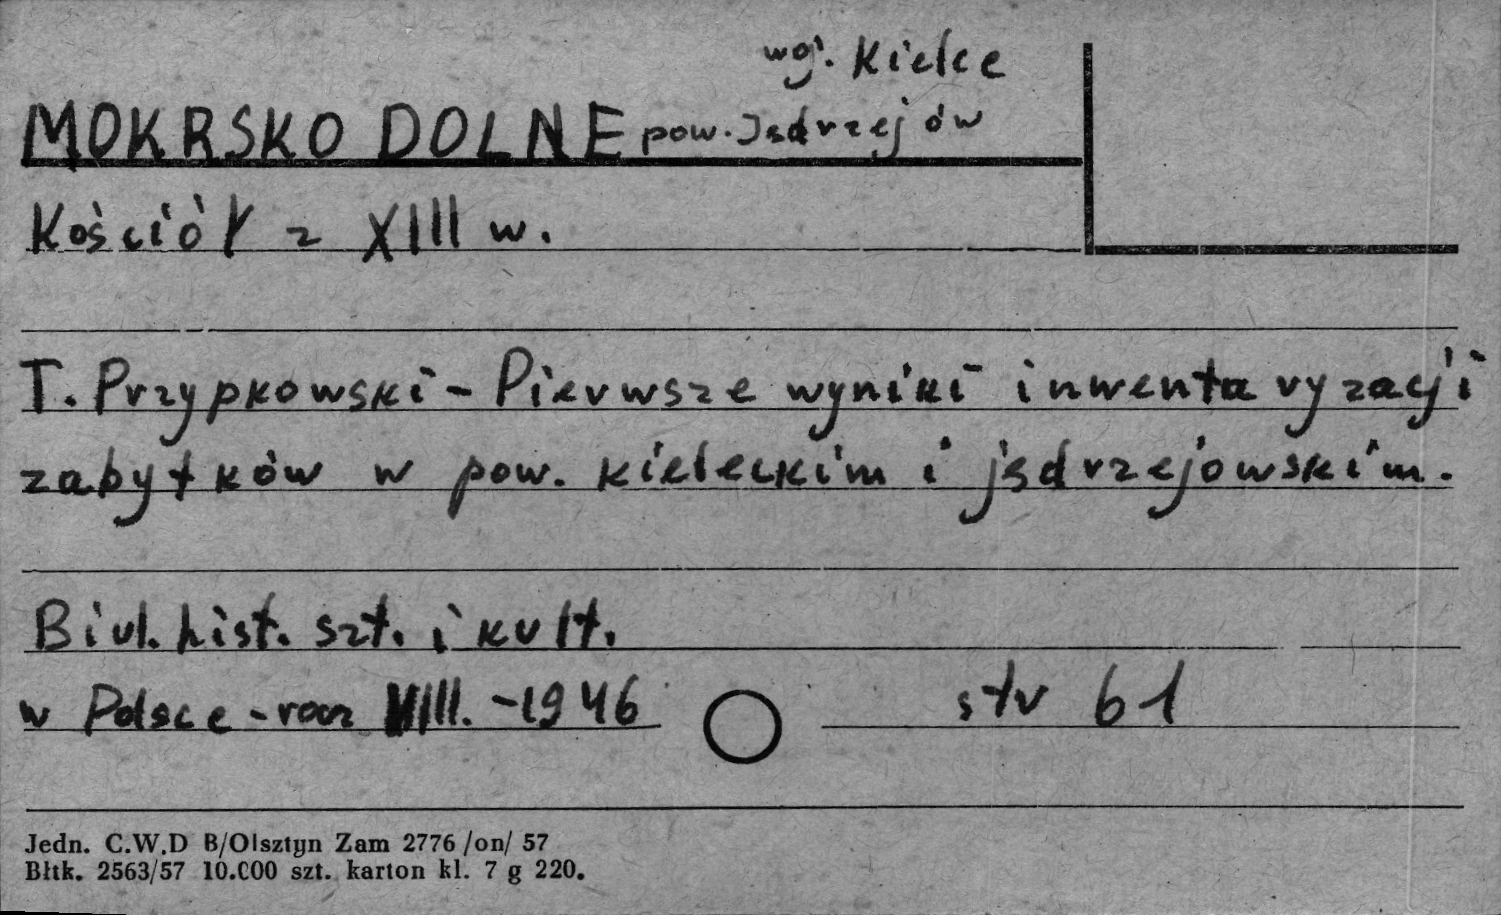 woj. Kielce
MOKRSKO DOLNE pow. Jędrzejów
Kościół z XIII w.
T. Przypkowski - Pierwsze wyniki inwentaryzacji
zabytków w pow. kieleckim i jędrzejowskim.
Biul. hist. szt. i kult.
w Polsce - rocz VIII. - 1946 str 61
Jedn. C.W.D B/Olsztyn Zam 2776 /on/ 57
Błtk. 2563/57 10.000 szt. karton kl. 7 g 220.